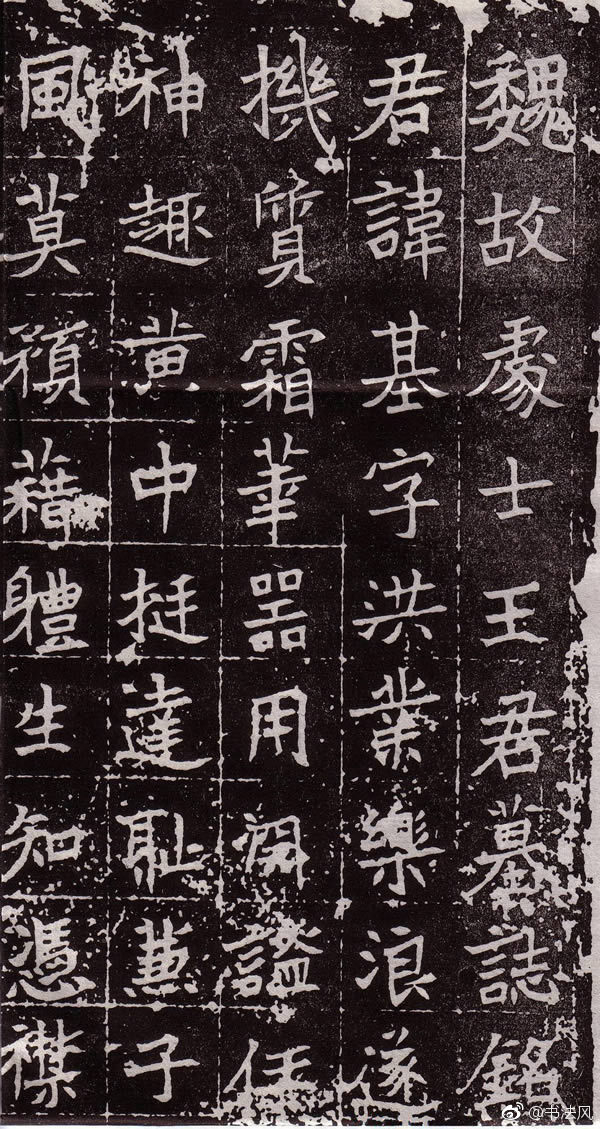 魏故處士王君墓誌銘
君諱基字洪業樂浪遂
機質霜華器用淵謐任
神趣黃中挺達耻蕭子
風莫穨藉軆生知憑襟
@书法风